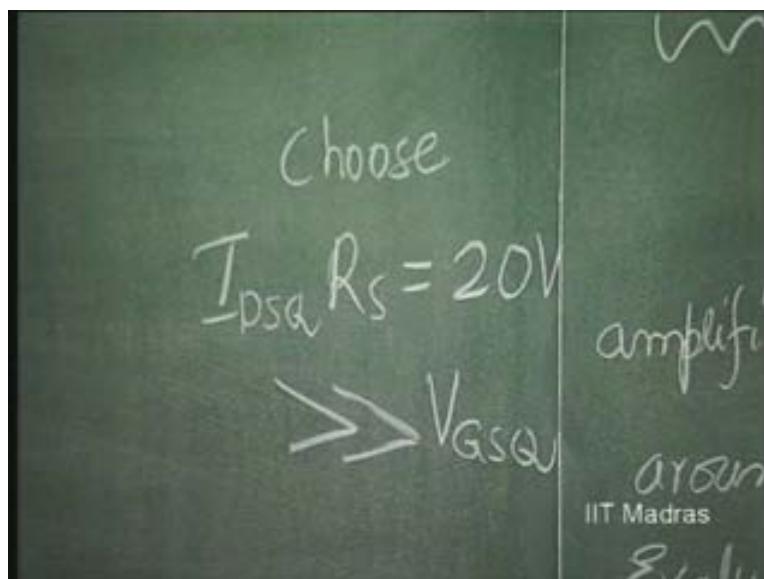 Choose
I_DSQ R_S = 20V
≫ V_GSQ
amplifi
aroun
IIT Madras